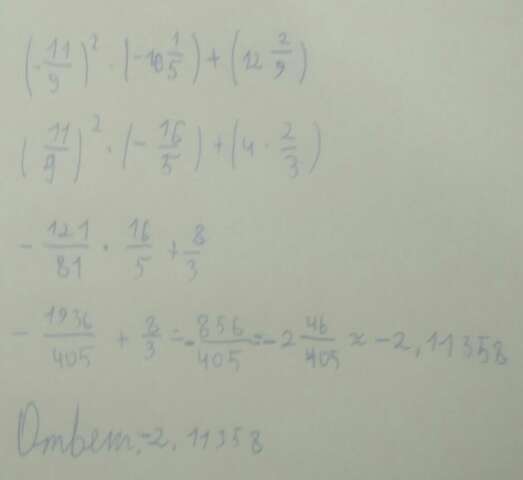 (-11/9)² · (-10 1/5) + (12 2/9)
(11/9)² · (-16/5) + (4 · 2/3)
- 121/81 · 16/5 + 8/3
- 1936/405 + 8/3 = - 856/405 = -2 46/405 ≈ -2,11358
Ответ: -2,11358